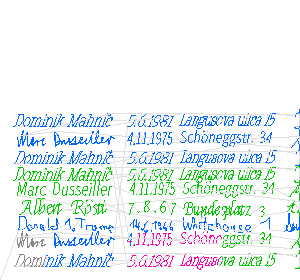 Dominik Mahnič 5.6.1981 Langusova ulica 15
Marc Dusseiller 4.11.1975 Schöneggstr. 34
Dominik Mahnič 5.6.1981 Langusova ulica 15
Dominik Mahnič 5.6.1981 Langusova ulica 15
Marc Dusseiller 4.11.1975 Schöneggstr. 34
Albert Rösti 7.8.67 Bundesplatz 3
Donald J. Trump 14.6.1946 Whitehouse 1
Marc Dusseiller 4.11.1975 Schöneggstr. 34
Dominik Mahnič 5.6.1981 Langusova ulica 15